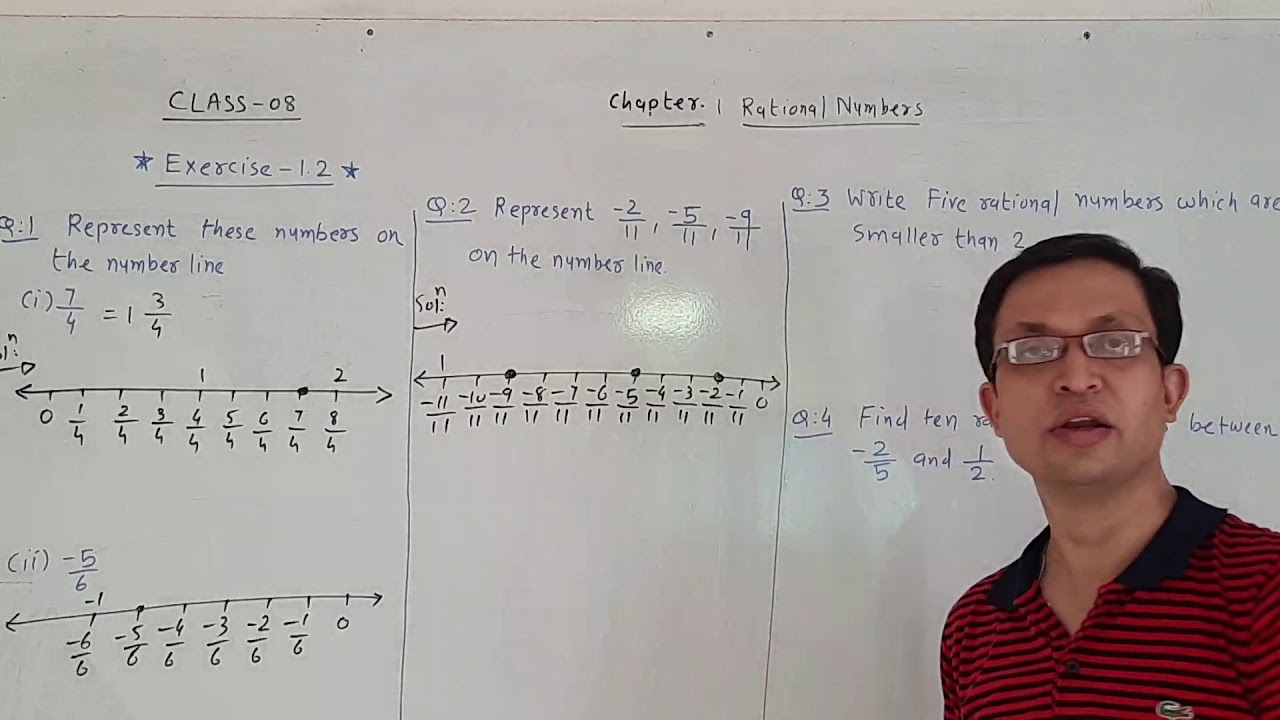 CLASS-08
Chapter. 1 Rational Numbers
* Exercise-1.2 *
Q:1 Represent these numbers on
the number line
(i) 7/4 = 1 3/4
1 2
0 1/4 2/4 3/4 4/4 5/4 6/4 7/4 8/4
(ii) -5/6
-1
-6/6 -5/6 -4/6 -3/6 -2/6 -1/6 0
Q:2 Represent -2/11, -5/11, -9/11
on the number line.
Sol:n
1
-11/11 -10/11 -9/11 -8/11 -7/11 -6/11 -5/11 -4/11 -3/11 -2/11 -1/11 0
Q:3 Write Five rational numbers which are
smaller than 2
Q:4 Find ten between
-2/5 and 1/2.